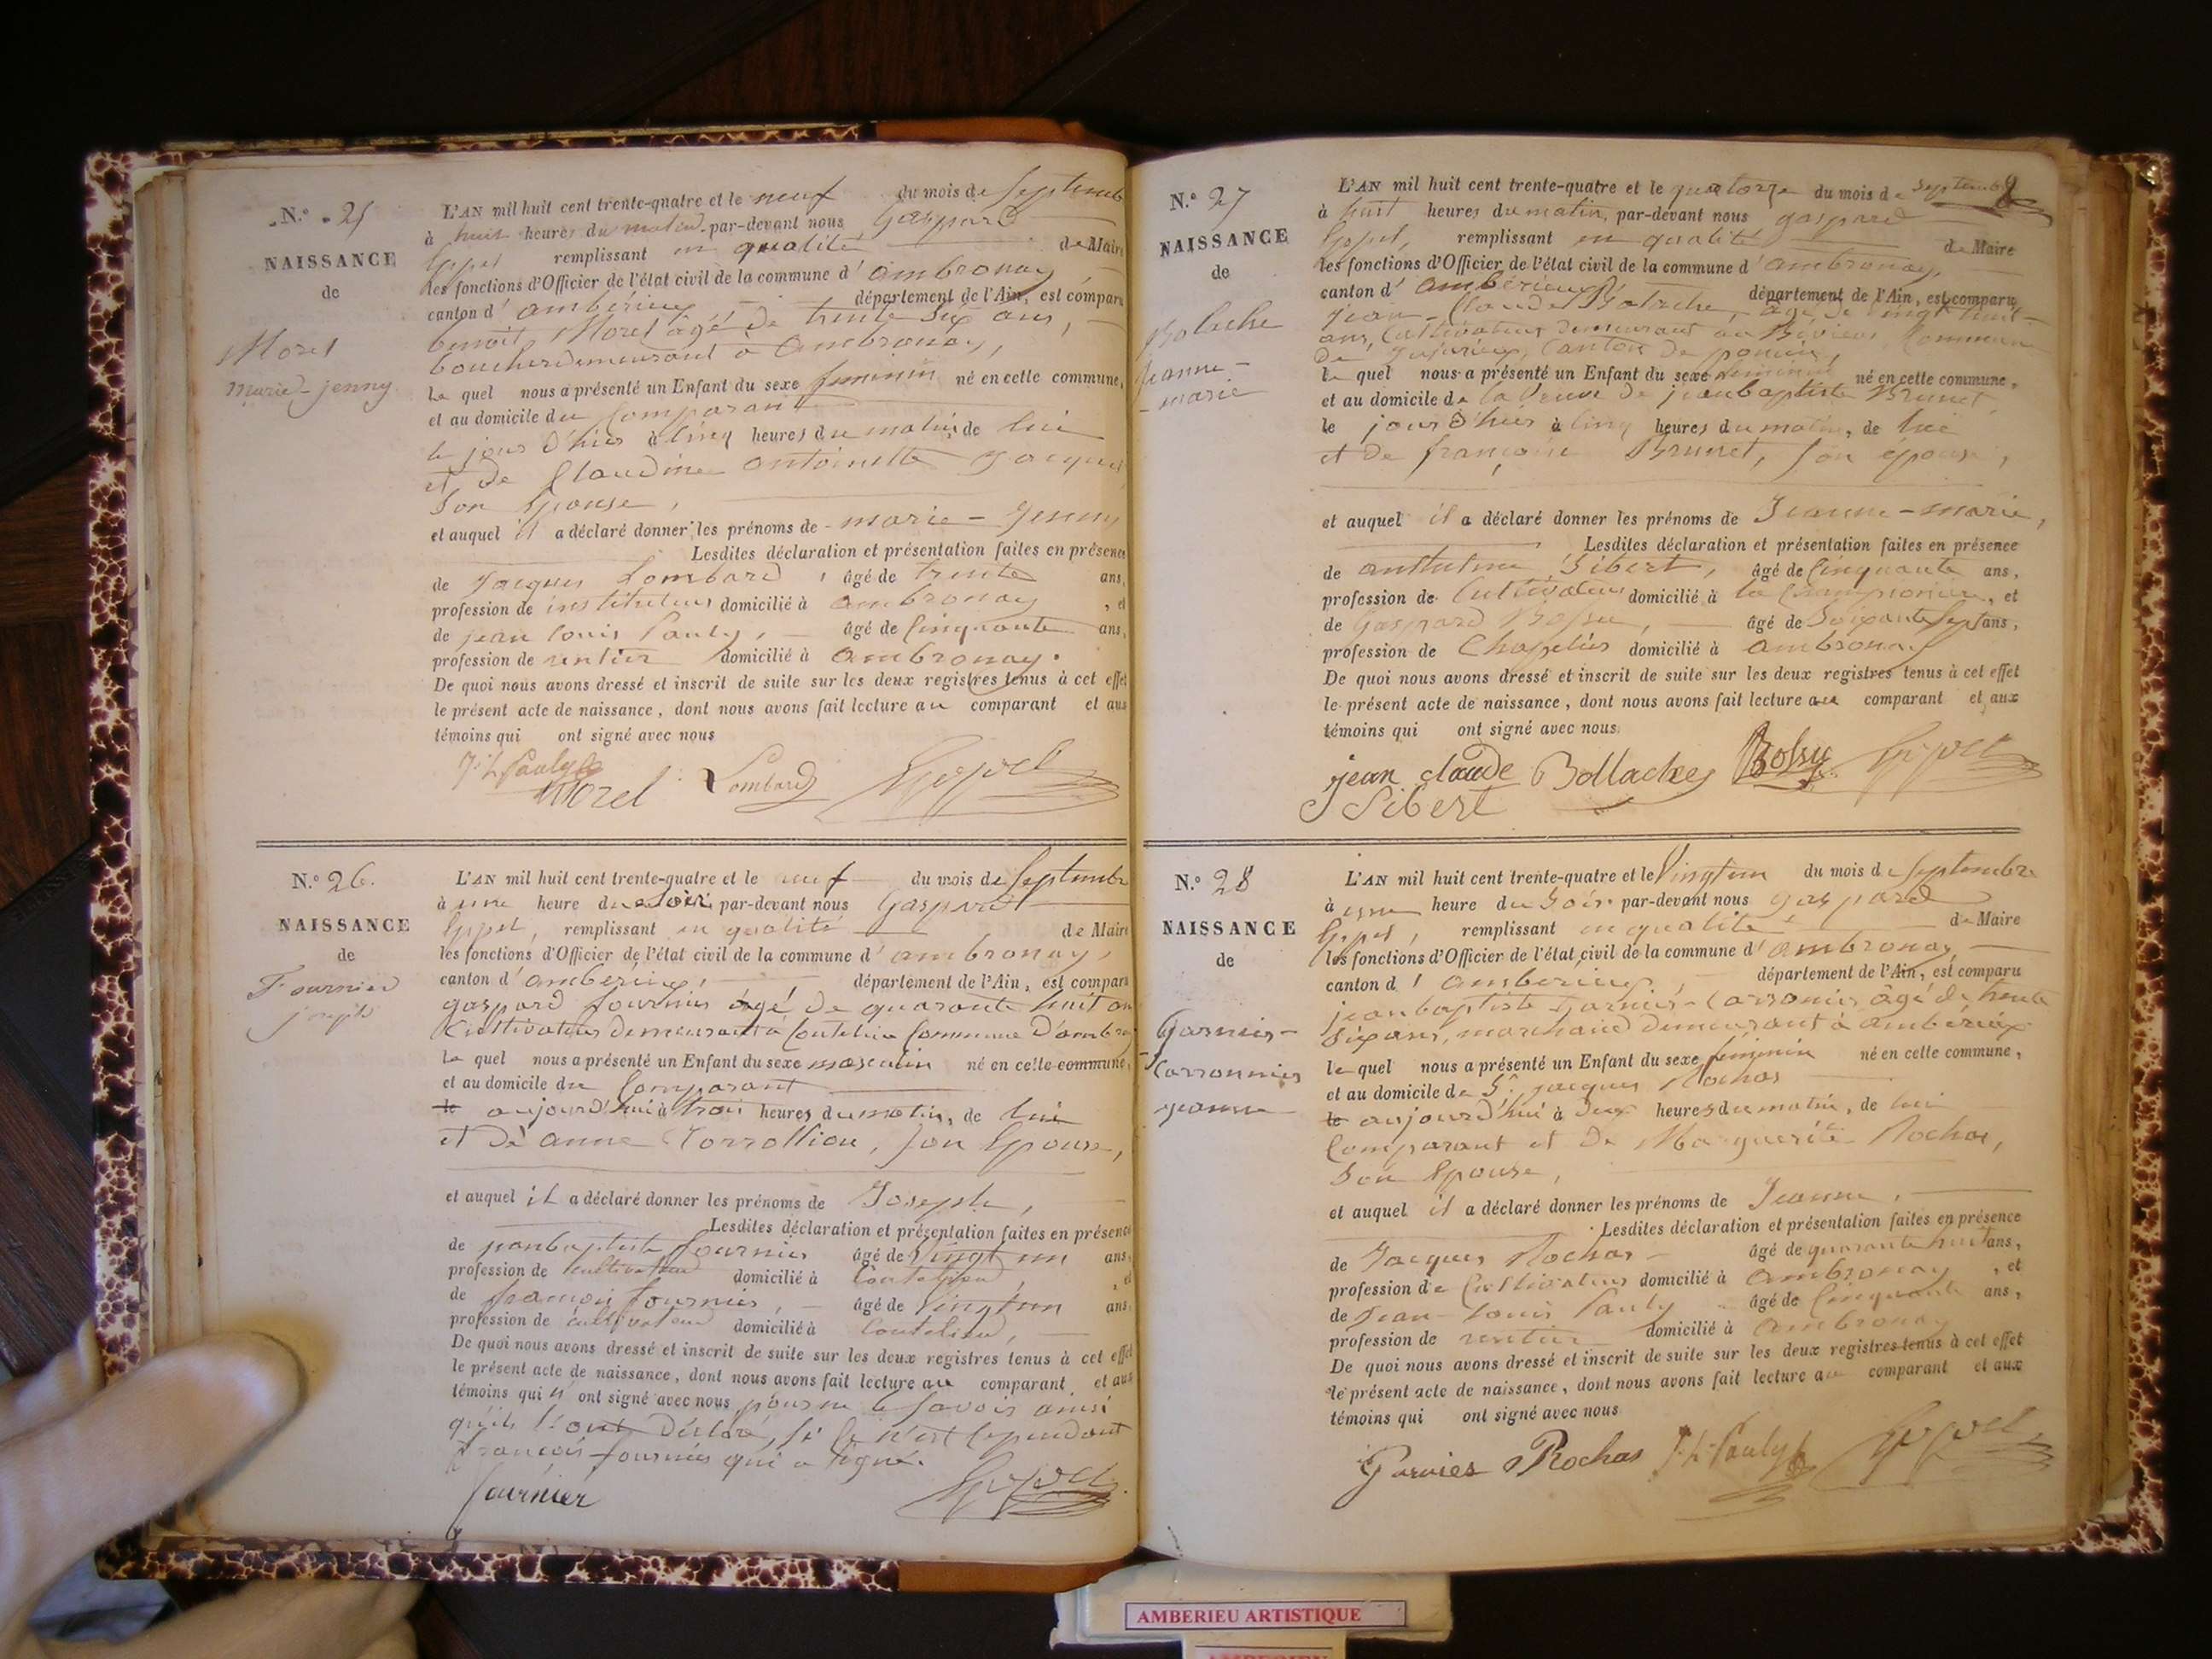 N.º 25
NAISSANCE
de
Morel
marie-jenny
L'AN mil huit cent trente-quatre et le neuf du mois de Septemb
à huit heures du matin par-devant nous Gaspard
remplissant en qualité de Maire
les fonctions d'Officier de l'état civil de la commune d'ambronay
canton d'ambérieux département de l'Ain, est comparu
benoit Morel âgé de trente six ans,
boucher demeurant à Ambronay,
le quel nous a présenté un Enfant du sexe feminin né en cette commune,
et au domicile du Comparant
le jour d'hier à cinq heures du matin, de lui
et de Claudine antoinette
Son Epouse,
et auquel il a déclaré donner les prénoms de marie-Jenny
Lesdites déclaration et présentation faites en présence
de Jacques Lombard, âgé de trente ans,
profession de instituteur domicilié à ambronay, et
de jean louis Pauly, âgé de Cinquante ans,
profession de rentier domicilié à Ambronay.
De quoi nous avons dressé et inscrit de suite sur les deux registres tenus à cet effet
le présent acte de naissance, dont nous avons fait lecture au comparant et aux
témoins qui ont signé avec nous
J. L. Pauly
Morel Lombard
N.º 26.
NAISSANCE
de
Fournier
joseph
L'AN mil huit cent trente-quatre et le neuf du mois de Septembre
à une heure du soir par-devant nous Gaspard
remplissant en qualité de Maire
les fonctions d'Officier de l'état civil de la commune d'ambronay,
canton d'ambérieux, département de l'Ain, est comparu
gaspard fournier âgé de quarante huit ans
Cultivateur demeurant à Coutelieu Commune D'ambro
le quel nous a présenté un Enfant du sexe masculin né en cette commune,
et au domicile du Comparant
le aujourd'hui à trois heures du matin, de lui
et de anne, son Epouse,
et auquel il a déclaré donner les prénoms de Joseph,
Lesdites déclaration et présentation faites en présence
de jeanbaptiste fournier âgé de Vingt un ans,
profession de cultivateur domicilié à Coutelieu, et
de françois fournier, âgé de Vingt un ans
profession de cultivateur domicilié à Coutelieu,
De quoi nous avons dressé et inscrit de suite sur les deux registres tenus à cet effet
le présent acte de naissance, dont nous avons fait lecture au comparant et aux
témoins qui n'ont signé avec nous pour ne le savoir ainsi
qu'ils l'ont Déclaré, si ce n'est cependant
françois fournier qui a signé.
fournier
N.º 27
NAISSANCE
de
Bolache
jeanne-
-marie
L'AN mil huit cent trente-quatre et le quatorze du mois de Septembre
à huit heures du matin, par-devant nous gaspard
remplissant en qualité de Maire
les fonctions d'Officier de l'état civil de la commune d'ambronay,
canton d'ambérieux département de l'Ain, est comparu
Jean-Claude Bolache, âgé de vingt huit
ans, Cultivateur demeurant au Commune
de Jujurieux, Canton de poncin,
le quel nous a présenté un Enfant du sexe féminin né en cette commune,
et au domicile de la Veuve de jeanbaptiste Brunet
le jour d'hier à cinq heures du matin, de lui
et de françoise Brunet, son épouse,
et auquel il a déclaré donner les prénoms de Jeanne-marie,
Lesdites déclaration et présentation faites en présence
de anthelme Sibert, âgé de Cinquante ans,
profession de Cultivateur domicilié à la, et
de Gaspard Bossu, âgé de Soixante Sept ans,
profession de Chapelier domicilié à ambronay
De quoi nous avons dressé et inscrit de suite sur les deux registres tenus à cet effet
le présent acte de naissance, dont nous avons fait lecture au comparant et aux
témoins qui ont signé avec nous.
jean claude Bollache Bossu
Sibert
N.º 28
NAISSANCE
de
Garnier-
-Carronnier
jeanne
L'AN mil huit cent trente-quatre et le Vingtun du mois de Septembre
à une heure du Soir par-devant nous gaspard
remplissant en qualité de Maire
les fonctions d'Officier de l'état civil de la commune d'ambronay
canton d'amberieux, département de l'Ain, est comparu
jeanbaptiste Garnier-Carronnier âgé de trente
six ans, marchand demeurant à ambérieux
le quel nous a présenté un Enfant du sexe féminin né en cette commune,
et au domicile de Sr. jacques Rochas
le aujourd'hui à deux heures du matin, de lui
Comparant et de Marguerite Rochas,
Son Epouse,
et auquel il a déclaré donner les prénoms de Jeanne,
Lesdites déclaration et présentation faites en présence
de Jacques Rochas âgé de quarante huit ans,
profession de Cultivateur domicilié à Ambronay, et
de Jean-Louis Pauly âgé de Cinquante ans,
profession de rentier domicilié à Ambronay
De quoi nous avons dressé et inscrit de suite sur les deux registres tenus à cet effet
le présent acte de naissance, dont nous avons fait lecture au comparant et aux
témoins qui ont signé avec nous
Garnier Rochas J. L. Pauly
AMBERIEU ARTISTIQUE